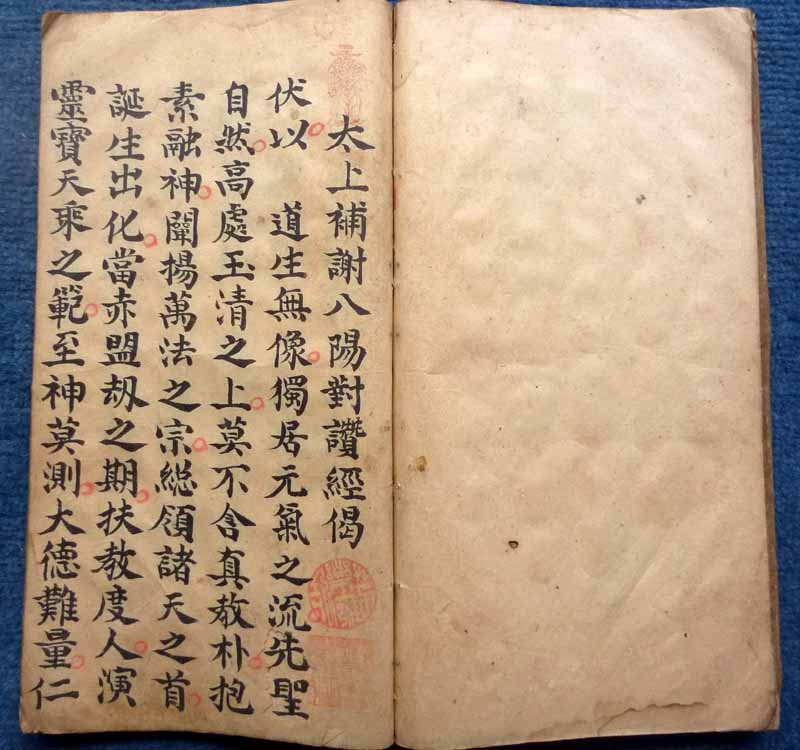 太上補謝八陽對讚經偈
伏以 道生無像獨居元氣之流先聖
自然高處玉清之上莫不含真教朴抱
素融神闡揚萬法之宗総領諸天之首
誕生出化當赤盟劫之期扶教度人演
靈寶天乘之範至神莫測大德難量仁